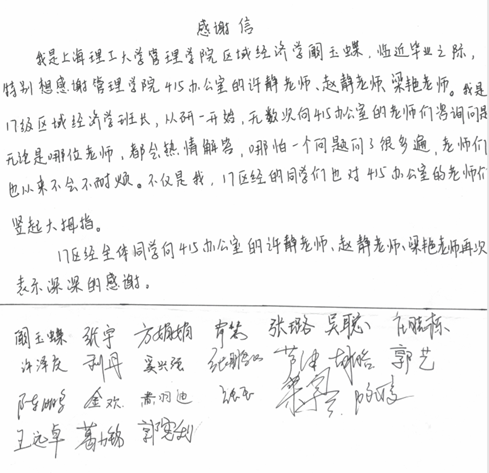 感谢信
我是上海理工大学管理学院区域经济学阚玉蝶，临近毕业之际，
特别想感谢管理学院415办公室的许静老师、赵静老师、梁艳老师。我是
17级区域经济学班长，从研一开始，无数次向415办公室的老师们咨询问题
无论是哪位老师，都会热情解答，哪怕一个问题问了很多遍，老师们
也从来不会不耐烦。不仅是我，17区经的同学们也对415办公室的老师们
竖起大拇指。
17区经全体同学向415办公室的许静老师、赵静老师、梁艳老师再次
表示深深的感谢。
阚玉蝶 张宇 方娟娟 张璐 吴聪
许泽庆 利丹 郭艺
金欢
王远卓